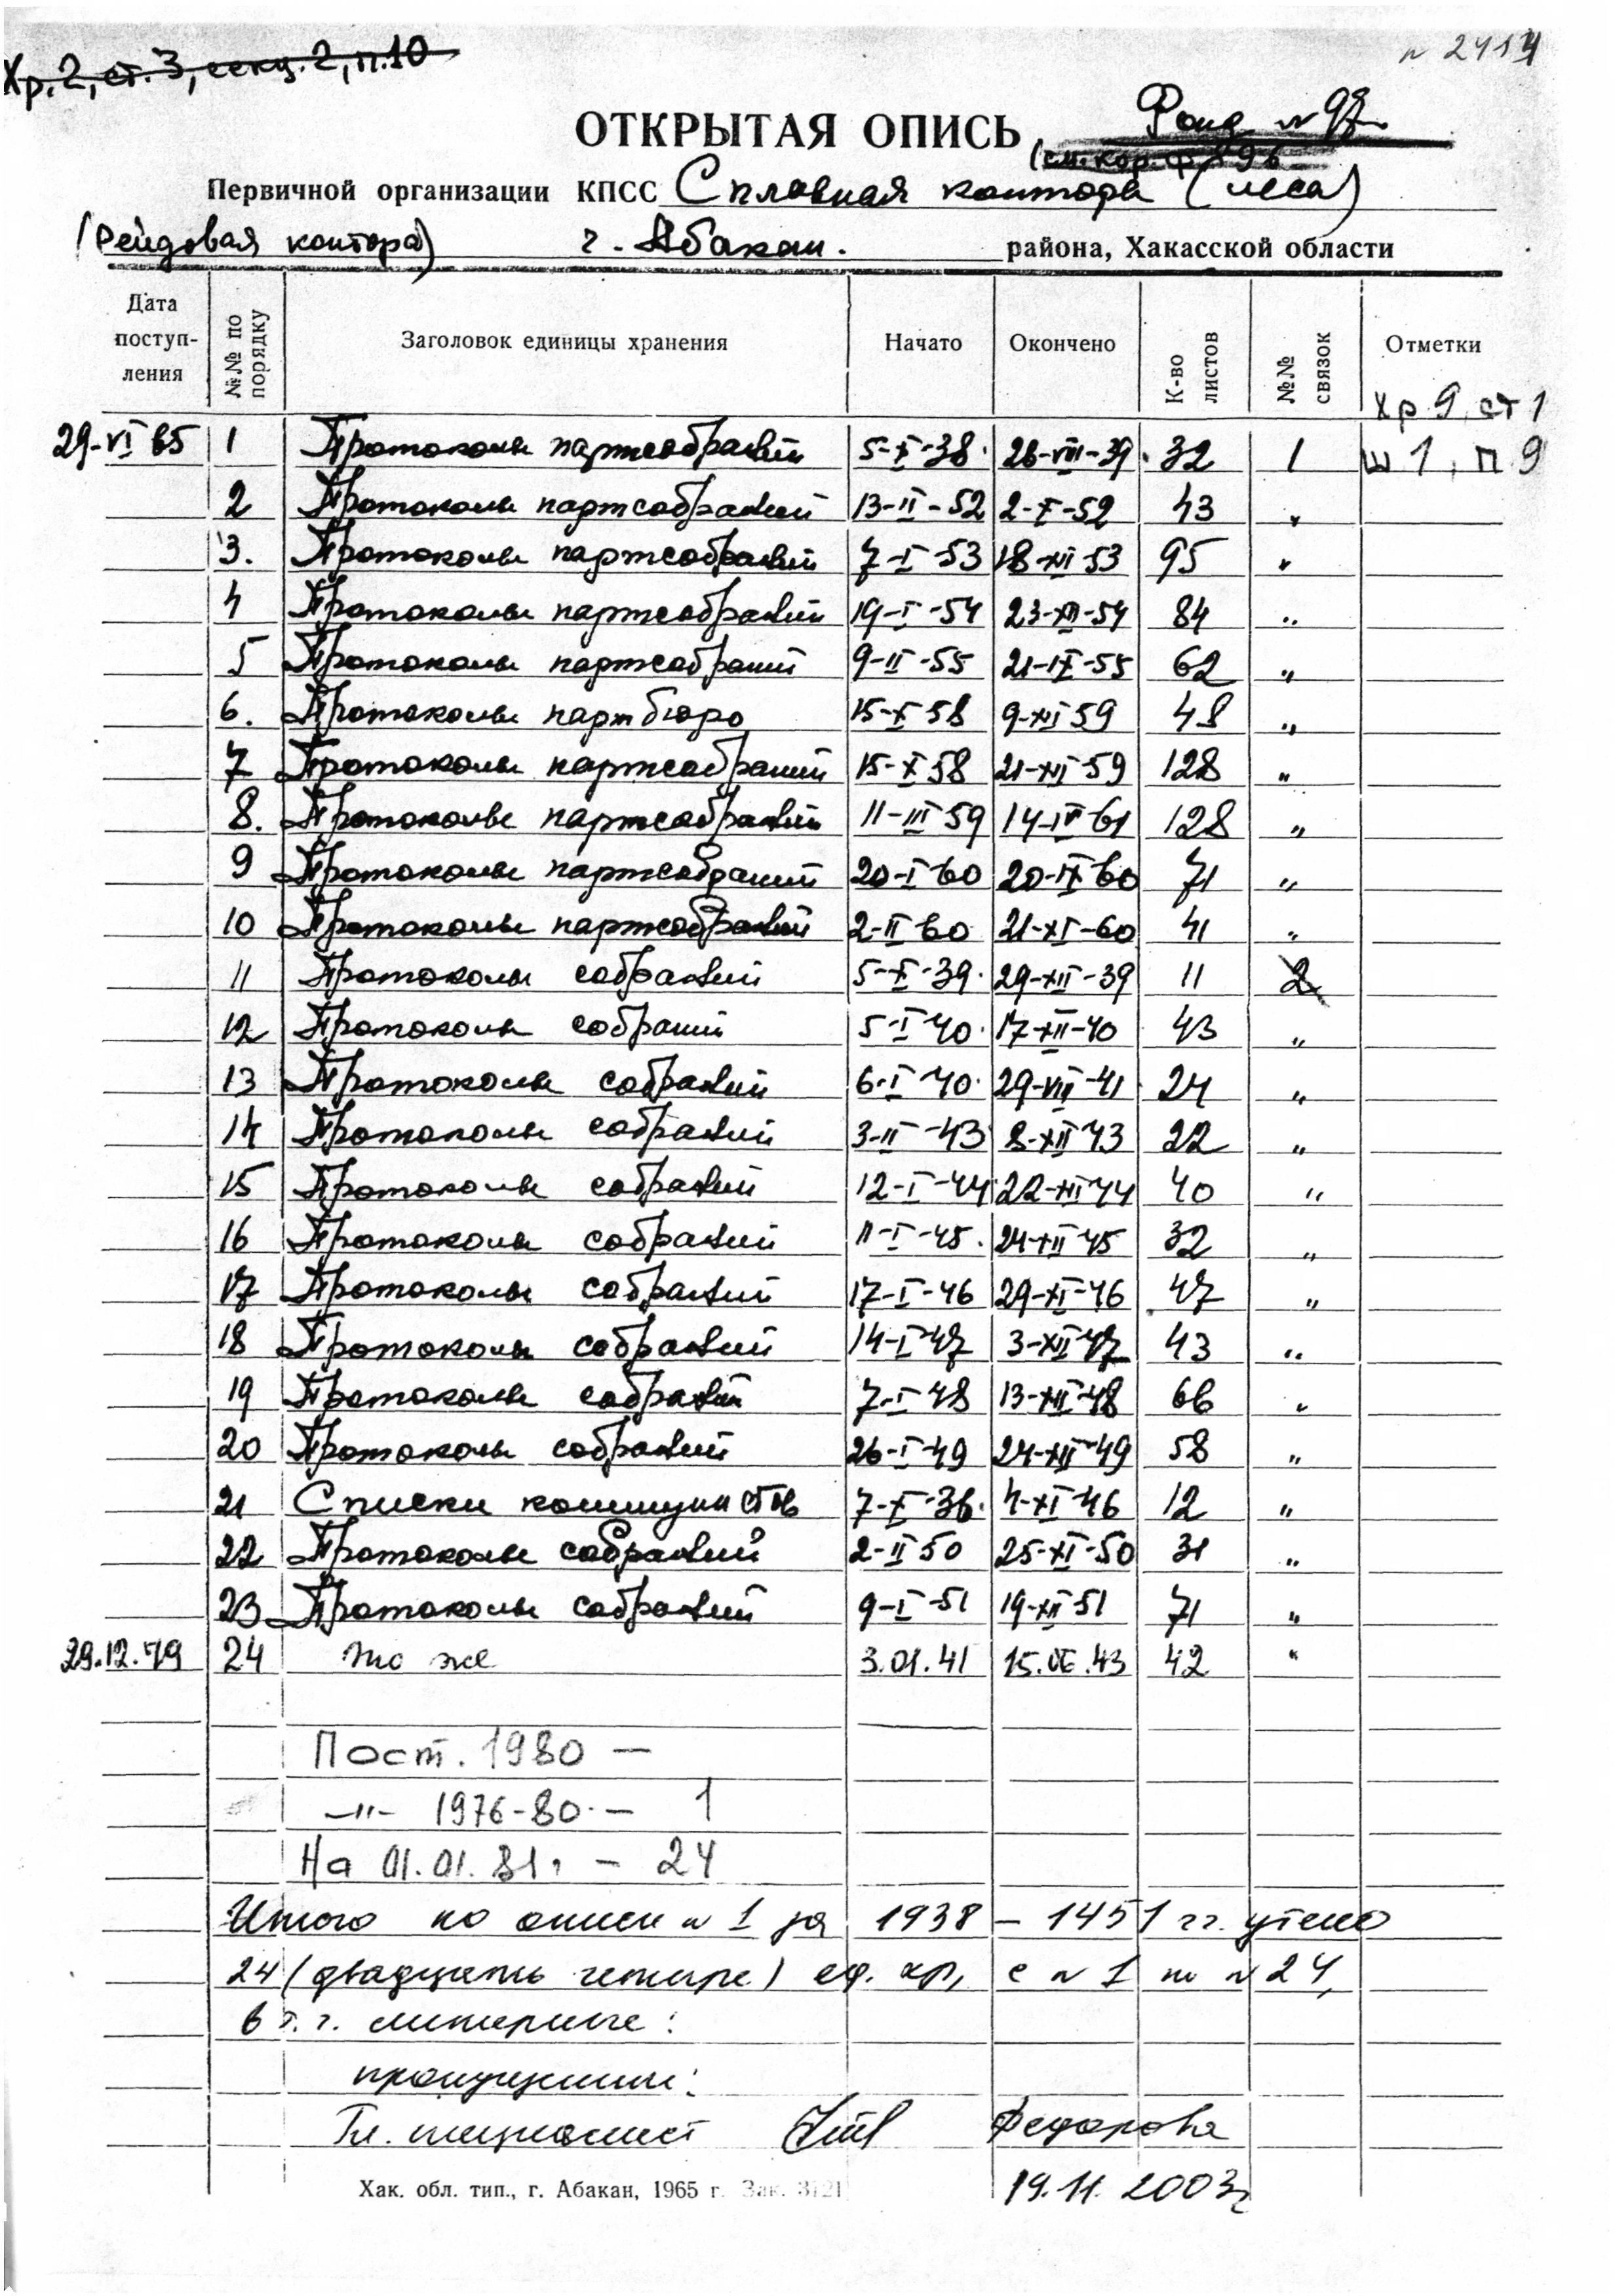 Хр. 2, ст. 3, секц. 2, п. 10
n 2414
ОТКРЫТАЯ ОПИСЬ Фонд №97
(см. кор. ф.
Первичной организации КПСС Сплавная контора (леса)
(Рейдовая контора) г. Абакан. района, Хакасской области
Дата поступ- ления №№ по порядку Заголовок единицы хранения Начато Окончено К-во листов №№ связок Отметки
Хр 9, ст 1
29-VI 65 1 Протоколы партсобраний 5-X-38. 26-VIII-39. 32 1 ш 1, п 9
2 Протоколы партсобраний 13-II-52 2-X-52 43 "
3. Протоколы партсобраний 7-I-53 18-XII 53 95 "
4 Протоколы партсобраний 19-I-54 23-XII-54 84 "
5 Протоколы партсобраний 9-II-55 21-IX-55 62 "
6. Протоколы партбюро 15-X 58 9-XII 59 48 "
7 Протоколы партсобраний 15-X 58 21-XII 59 128 "
8. Протоколы партсобраний 11-III 59 14-IV-61 128 "
9 Протоколы партсобраний 20-I 60 20-IX 60 71 "
10 Протоколы партсобраний 2-II 60 21-XI-60 41 "
11 Протоколы собраний 5-X-39. 29-XII-39 11 2
12 Протоколы собраний 5-I 40. 17-XII-40 43 "
13 Протоколы собраний 6-I 40. 29-VIII-41 24 "
14 Протоколы собраний 3-II-43 8-XII 43 22 "
15 Протоколы собраний 12-I-44 22-XII 44 40 "
16 Протоколы собраний 11-I-45. 24-XII 45 32 "
17 Протоколы собраний 17-I-46 29-XI-46 47 "
18 Протоколы собраний 14-I 47 3-XII 47 43 "
19 Протоколы собраний 7-I 48 13-XII-48 66 "
20 Протоколы собраний 26-I 49 24-XII-49 58 "
21 Списки коммунистов 7-X-36. 4-XI-46 12 "
22 Протоколы собраний 2-II 50 25-XI-50 31 "
23 Протоколы собраний 9-I-51 19-XII 51 71 "
29.12.79 24 то же 3.01.41 15.VI.43 42 "
Пост. 1980 —
—"— 1976-80. — 1
На 01.01.81г — 24
Итого по описи № 1 за 1938 – 1451 гг. учтено
24 (двадцать четыре) ед. хр, с № 1 по № 24,
в т. ч. литерные:
пропущенные:
Гл. специалист Федорова
19.11.2003г
Хак. обл. тип., г. Абакан, 1965 г. Зак. 3121